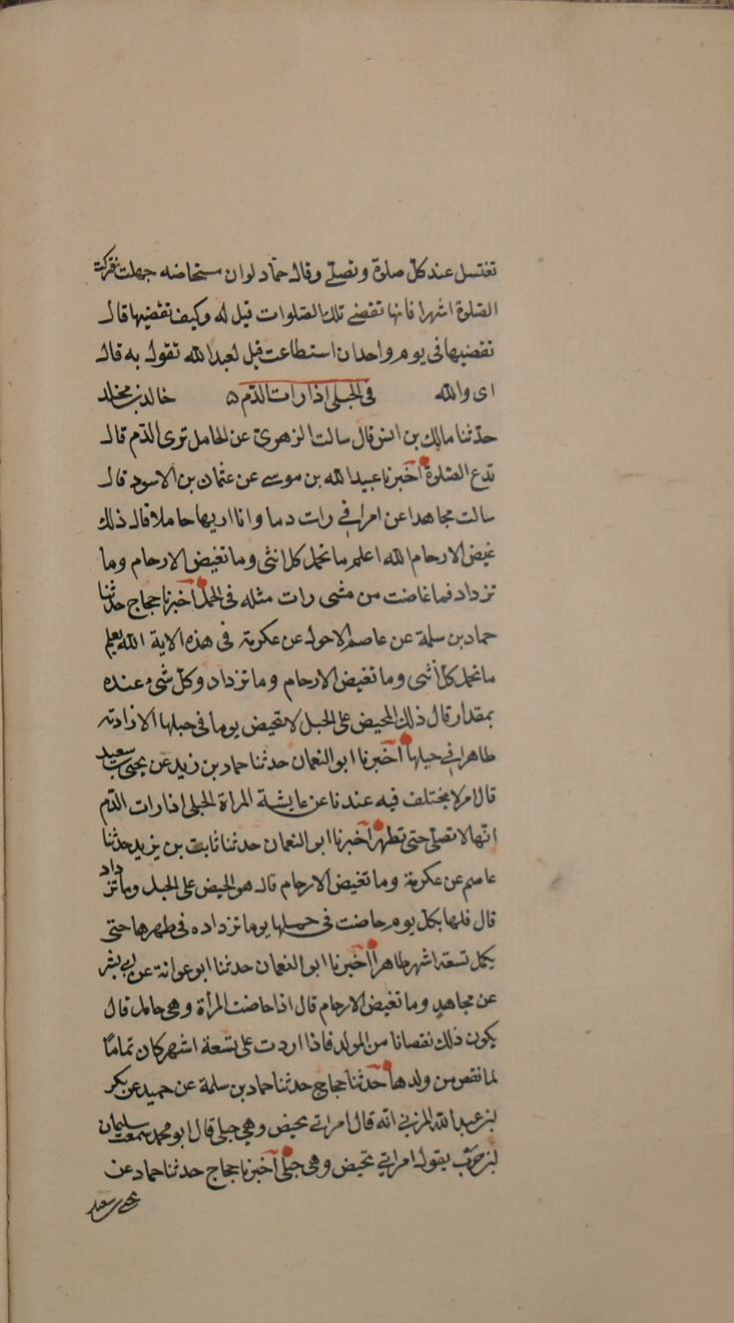 تغتسل عند كل صلوة وتصلي وقال حماد لو ان مستحاضه جهلت فتركت
الصلوة اشهرا فانها تقضي تلك الصلوات قيل له وكيف تقضيها قال
تقضيها في يوم واحد ان استطاعت قيل لعبد الله تقول به قال
اى والله في الحبلى اذا رات الدم ه خالد بن مخلد
حدثنا مالك بن انس قال سالت الزهري عن الحامل ترى الدم قال
تدع الصلوة اخبرنا عبيد الله بن موسى عن عثمان بن الاسود قال
سالت مجاهدا عن امراتي رات دما وانا اريها حاملا قال ذلك
غيض الارحام الله اعلم ما تحمل كل انثى وما تغيض الارحام وما
تزداد فما غاضت من شي رات مثله في الحمل اخبرنا حجاج حدثنا
حماد بن سلمة عن عاصم الاحول عن عكرمة في هذه الاية الله يعلم
ما تحمل كل أنثى وما تغيض الارحام وما تزداد وكل شيء عنده
بمقدار قال ذلك المحيض على الحبل لا تحيض يوما في حبلها الا زادته
طاهرا في حبلها اخبرنا ابو النعمان حدثنا حماد بن زيد عن يحيى بن سعيد
قال امر لا يختلف فيه عندنا عن عايشة المراة الحبلى اذا رات الدم
انها لا تصلي حتى تطهر اخبرنا ابو النعمان حدثنا ثابت بن يزيد حدثنا
عاصم عن عكرمة وما تغيض الارحام قال هو الحيض على الحبل وما تزداد
قال فلها بكل يوم حاضت في حملها يوما تزداده في طهرها حتى
يكمل تسعة اشهر طاهرا اخبرنا ابو النعمان حدثنا ابو عوانة عن ابي بشر
عن مجاهد وما تغيض الارحام قال اذا حاضت المرأة وهي حامل قال
يكون ذلك نقصانا من الولد فاذا اردت على تسعة اشهر كان تماما
لما نقص من ولدها حدثنا حجاج حدثنا حماد بن سلمة عن حميد عن بكر
بن عبد الله المزني انه قال امراتي تحيض وهي حبلى قال ابو محمد سمعت سليمان
بن حرب يقول امراتي تحيض وهي حبلى اخبرنا حجاج حدثنا حماد عن
يحيى بن سعيد